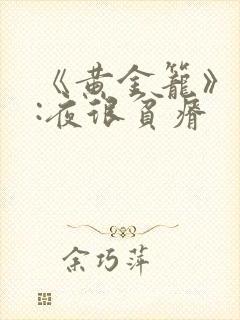 《黄金籠》
:夜很貧瘠
余巧萍